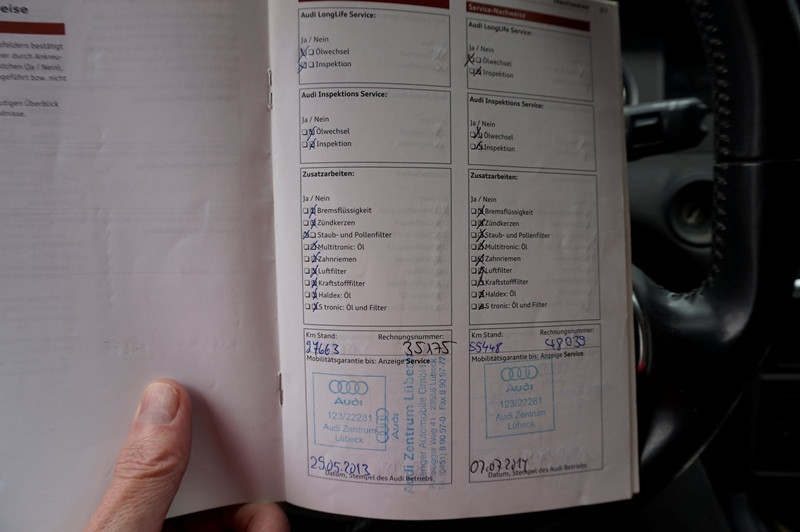 eise
cheldern bestätigt
mer durch Ankreu-
stchen (Ja / Nein),
geführt bzw. nicht
utigen Überblick
dnisse.
Audi LongLife Service:
Ja / Nein
Ölwechsel
Inspektion
Audi Inspektions Service:
Ja / Nein
Ölwechsel
Inspektion
Zusatzarbeiten:
Ja / Nein
Bremsflüssigkeit
Zündkerzen
Staub- und Pollenfilter
Multitronic: Öl
Zahnriemen
Luftfilter
Kraftstofffilter
Haldex: Öl
S tronic: Öl und Filter
Km Stand: Rechnungsnummer:
27663 35175
Mobilitätsgarantie bis: Anzeige Service
Audi
123/22281
Audi Zentrum
Lübeck
Audi
Audi Zentrum Lübeck
29.05.2013
Datum, Stempel des Audi Betriebs
Service-Nachweise
Audi LongLife Service:
Ja / Nein
Ölwechsel
Inspektion
Audi Inspektions Service:
Ja / Nein
Ölwechsel
Inspektion
Zusatzarbeiten:
Ja / Nein
Bremsflüssigkeit
Zündkerzen
Staub- und Pollenfilter
Multitronic: Öl
Zahnriemen
Luftfilter
Kraftstofffilter
Haldex: Öl
S tronic: Öl und Filter
Km Stand: Rechnungsnummer:
55448 48039
Mobilitätsgarantie bis: Anzeige Service
Audi
123/22281
Audi Zentrum
Lübeck
07.07.2014
Datum, Stempel des Audi Betriebs